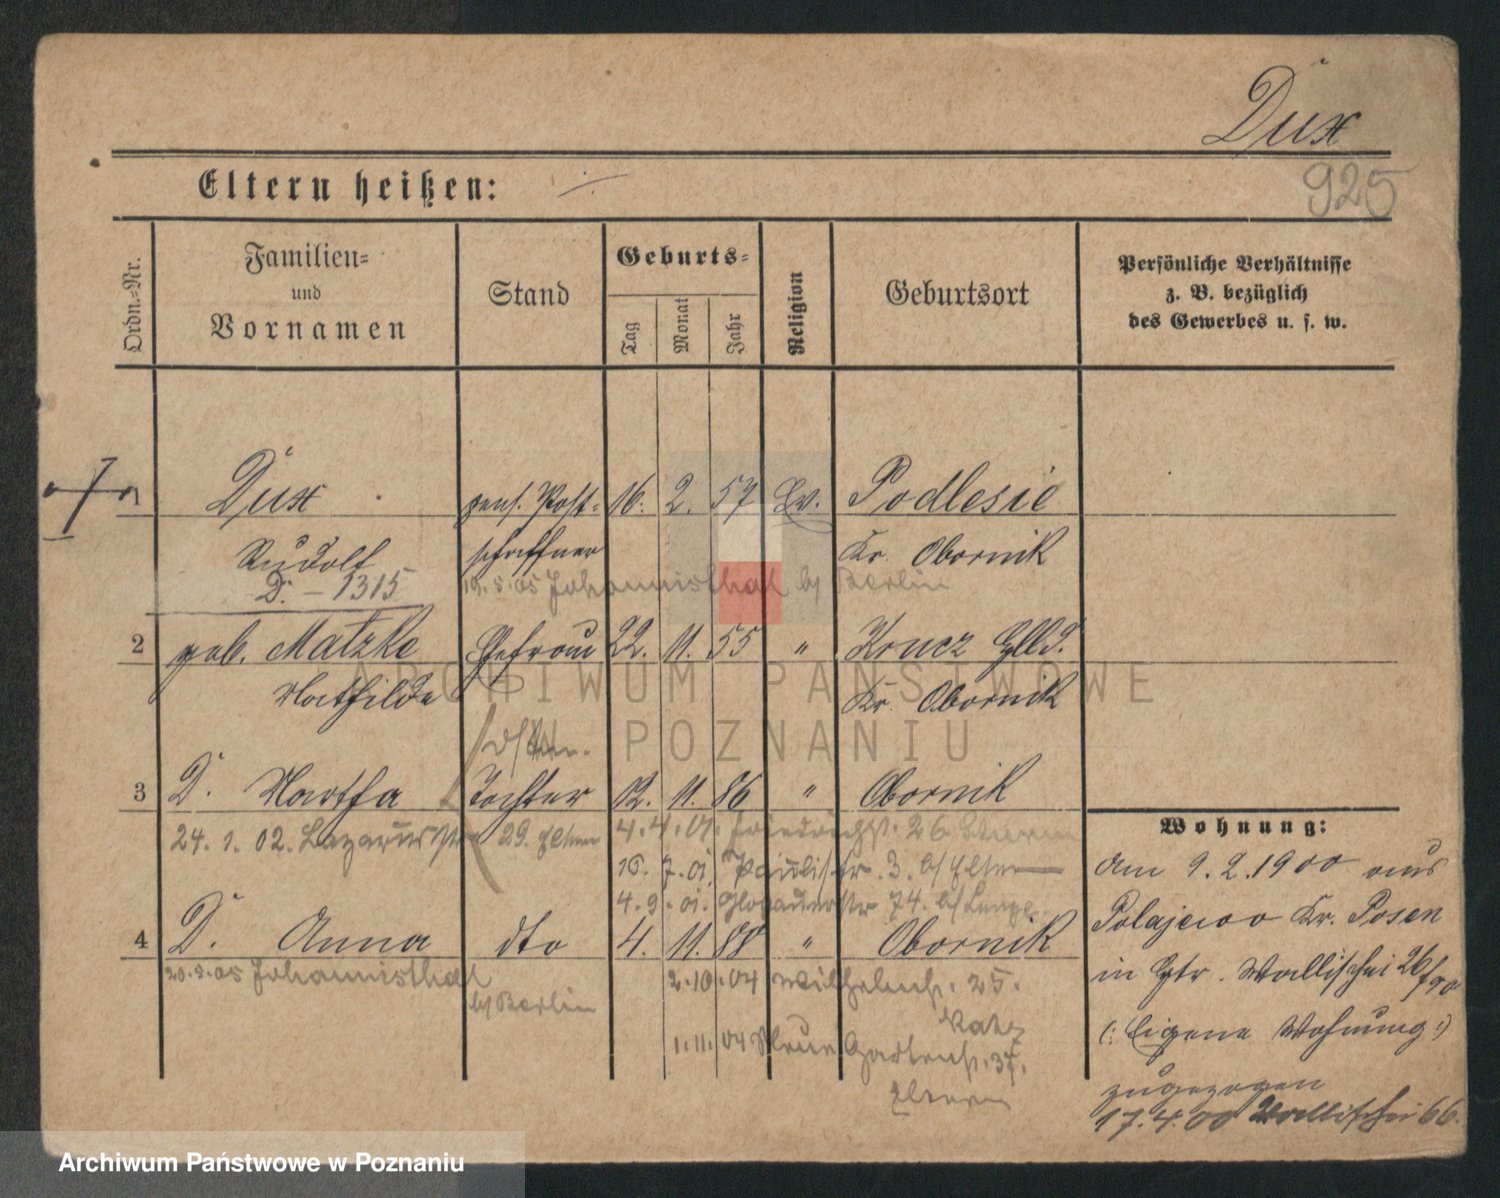 Dux
925
Eltern heißen: ÷
Ordn.-Nr.
Familien-
und
Vornamen
Stand
Geburts-
Tag
Monat
Jahr
Religion
Geburtsort
Persönliche Verhältnisse
z. B. bezüglich
des Gewerbes u. s. w.
1 Dux pens. Post- 16. 2. 57 Ev. Podlesie
Rudolf schaffner Kr. Obornik
D. – 1315 19.5.05 Johannisthal b/ Berlin
2 geb. Matzke Ehefrau 22. 11. 55 " Gld.
Mathilde Kr. Obornik
3 D. Martha Tochter 12. 11. 86 " Obornik
24. 1. 02. Lazarusstr 29. Eltern 4.4.01. Friedrichstr. 26
15. 7. 01. Paulistr. 3. b/ Eltern
4. 9. 01. Glogauerstr 74. b/
4 D. Anna dto 4. 11. 88 " Obornik
20.5.05 Johannisthal
b/ Berlin
2.10.04 Wilhelmstr. 25.
1.11.04 Neue Gartenstr. 37.
Eltern
Wohnung:
Am 9. 2. 1900 aus
Polajewo Kr. Posen
in Wallischei
(: Eigene Wohnung :)
zugezogen
17.4.00 Wallischei 66.
ARCHIWUM PAŃSTWOWE
W POZNANIU
Archiwum Państwowe w Poznaniu